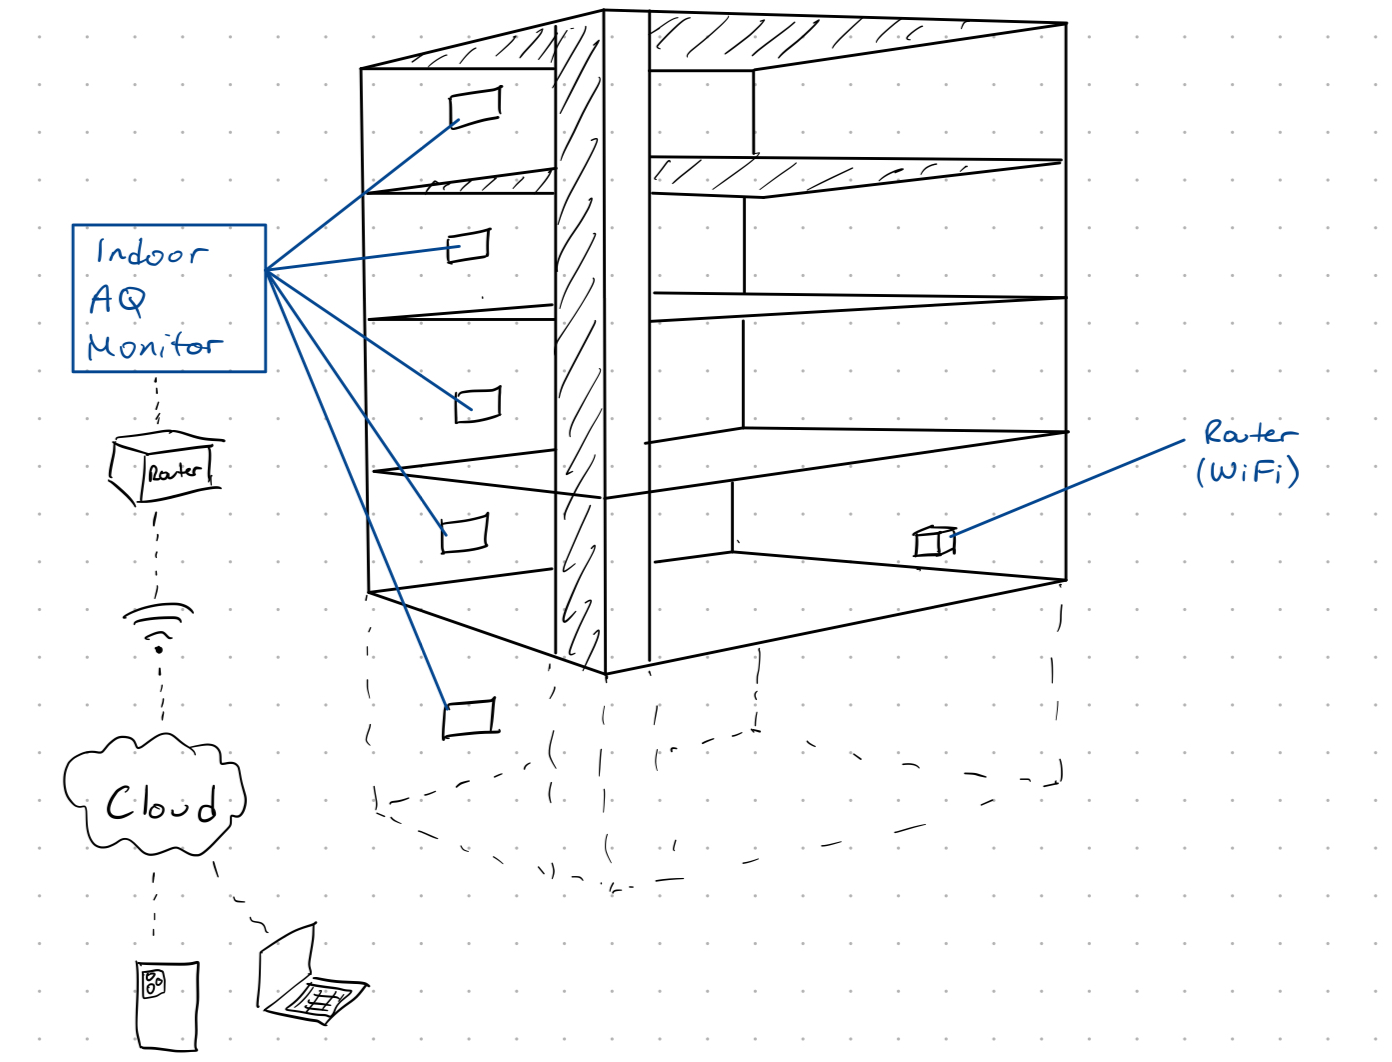 Indoor
AQ
Monitor
Router
Cloud
Router
(WiFi)